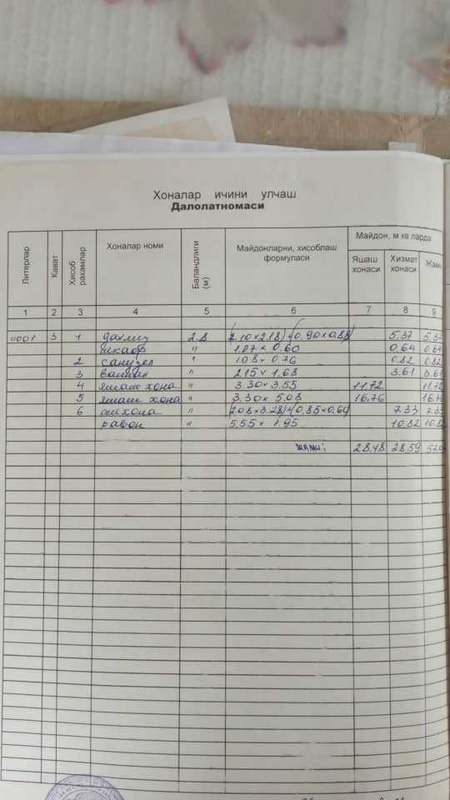 Хоналар ичини улчаш
Далолатномаси
Литерлар Кават Хисоб рахамлар Хоналар номи Баландлиги (м) Майдонларни, хисоблаш формуласи Майдон, м кв ларда
Яшаш хонаси Хизмат хонаси Жами
1 2 3 4 5 6 7 8 9
0001 3 1 дахлиз 2.8 (2.10 x 2.18)+(0.90 x 0.88) 5.37
шкаф " 1.07 x 0.60 0.64
2 санузел " 1.08 x 0.76 0.82 0.82
3 ванная " 2.15 x 1.68 3.61 3.61
4 яшаш хона " 3.30 x 3.55 11.72
5 яшаш хона " 3.30 x 5.08 16.76
6 ошхона " 7.33
равон " 5.55 x 1.95 10.82
жами: 28.48 28.59